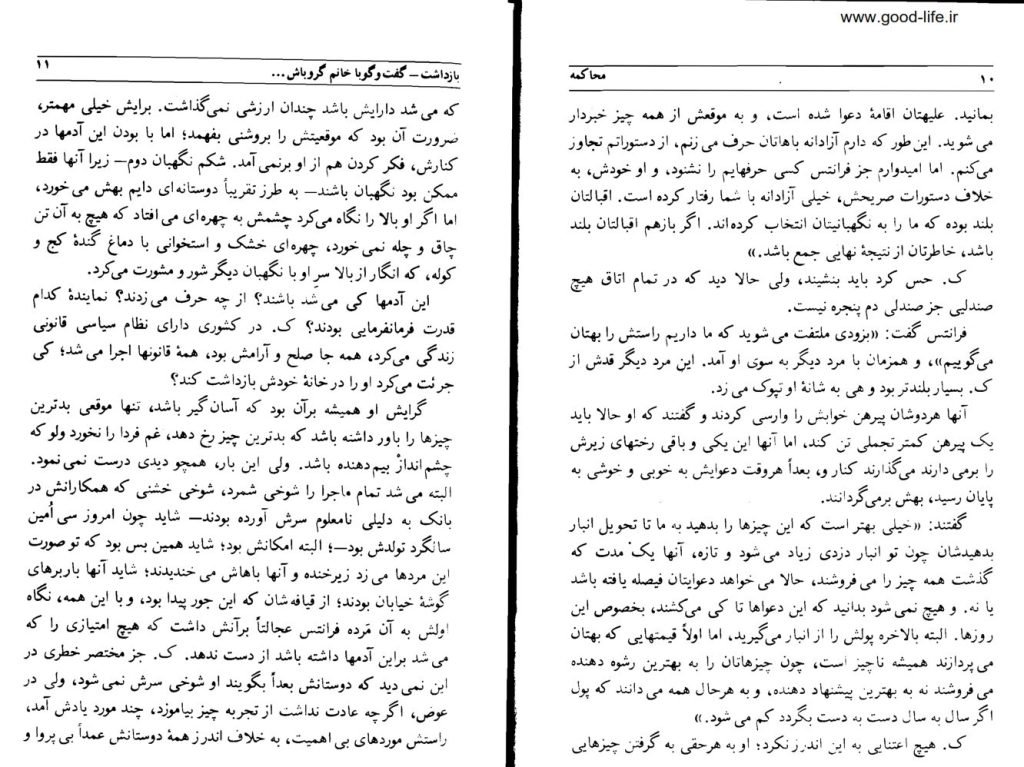 www.good-life.ir
۱۰ محاکمه
بمانید. علیهتان اقامهٔ دعوا شده است، و به موقعش از همه چیز خبردار
می شوید. این طور که دارم آزادانه باهاتان حرف می زنم، از دستوراتم تجاوز
می‌کنم. اما امیدوارم جز فرانتس کسی حرفهایم را نشنود، و او خودش، به
خلاف دستورات صریحش، خیلی آزادانه با شما رفتار کرده است. اقبالتان
بلند بوده که ما را به نگهبانیتان انتخاب کرده‌اند. اگر بازهم اقبالتان بلند
باشد، خاطرتان از نتیجهٔ نهایی جمع باشد.»
ک. حس کرد باید بنشیند، ولی حالا دید که در تمام اتاق هیچ
صندلیی جز صندلی دم پنجره نیست.
فرانتس گفت: «بزودی ملتفت می شوید که ما داریم راستش را بهتان
می‌گوییم»، و همزمان با مرد دیگر به سوی او آمد. این مرد دیگر قدش از
ک. بسیار بلندتر بود و هی به شانهٔ او تپوک می زد.
آنها هردوشان پیرهن خوابش را وارسی کردند و گفتند که او حالا باید
یک پیرهن کمتر تجملی تن کند، اما آنها این یکی و باقی رختهای زیرش
را برمی دارند می‌گذارند کنار و، بعداً هروقت دعوایش به خوبی و خوشی به
پایان رسید، بهش برمی‌گردانند.
گفتند: «خیلی بهتر است که این چیزها را بدهید به ما تا تحویل انبار
بدهیدشان چون تو انبار دزدی زیاد می شود و تازه، آنها یک مدت که
گذشت همه چیز را می فروشند، حالا می خواهد دعوایتان فیصله یافته باشد
یا نه. و هیچ نمی شود بدانید که این دعواها تا کی می‌کشند، بخصوص این
روزها. البته بالاخره پولش را از انبار می‌گیرید، اما اولاً قیمتهایی که بهتان
می پردازند همیشه ناچیز است، چون چیزهاتان را به بهترین رشوه دهنده
می فروشند نه به بهترین پیشنهاد دهنده، و به هرحال همه می دانند که پول
اگر سال به سال دست به دست بگردد کم می شود.»
ک. هیچ اعتنایی به این اندرز نکرد؛ او به هرحقی به گرفتن چیزهایی
بازداشت – گفت وگو با خانم گروباش ... ۱۱
که می شد دارایش باشد چندان ارزشی نمی‌گذاشت. برایش خیلی مهمتر،
ضرورت آن بود که موقعیتش را بروشنی بفهمد؛ اما با بودن این آدمها در
کنارش، فکر کردن هم از او برنمی آمد. شکم نگهبان دوم— زیرا آنها فقط
ممکن بود نگهبان باشند— به طرز تقریباً دوستانه ای دایم بهش می خورد،
اما اگر او بالا را نگاه می‌کرد چشمش به چهره‌ای می افتاد که هیچ به آن تن
چاق و چله نمی خورد، چهره‌ای خشک و استخوانی با دماغ گندهٔ کج و
کوله، که انگار از بالا سرِ او با نگهبان دیگر شور و مشورت می‌کرد.
این آدمها کی می شد باشند؟ از چه حرف می زدند؟ نمایندهٔ کدام
قدرت فرمانفرمایی بودند؟ ک. در کشوری دارای نظام سیاسی قانونی
زندگی می‌کرد، همه جا صلح و آرامش بود، همهٔ قانونها اجرا می شد؛ کی
جرئت می‌کرد او را در خانهٔ خودش بازداشت کند؟
گرایش او همیشه برآن بود که آسان گیر باشد، تنها موقعی بدترین
چیزها را باور داشته باشد که بدترین چیز رخ دهد، غم فردا را نخورد ولو که
چشم اندازْ بیم دهنده باشد. ولی این بار، همچو دیدی درست نمی نمود.
البته می شد تمام ماجرا را شوخی شمرد، شوخی خشنی که همکارانش در
بانک به دلیلی نامعلوم سرش آورده بودند— شاید چون امروز سی اُمین
سالگرد تولدش بود—؛ البته امکانش بود؛ شاید همین بس بود که تو صورت
این مردها می زد زیرخنده و آنها باهاش می خندیدند؛ شاید آنها باربرهای
گوشهٔ خیابان بودند؛ از قیافه شان که این جور پیدا بود، و با این همه، نگاه
اولش به آن مَرده فرانتس عجالتاً برآنش داشت که هیچ امتیازی را که
می شد براین آدمها داشته باشد از دست ندهد. ک. جز مختصر خطری در
این نمی دید که دوستانش بعداً بگویند او شوخی سرش نمی شود، ولی در
عوض، اگرچه عادت نداشت از تجربه چیز بیاموزد، چند مورد یادش آمد،
راستش موردهای بی اهمیت، به خلاف اندرز همهٔ دوستانش عمداً بی پروا و